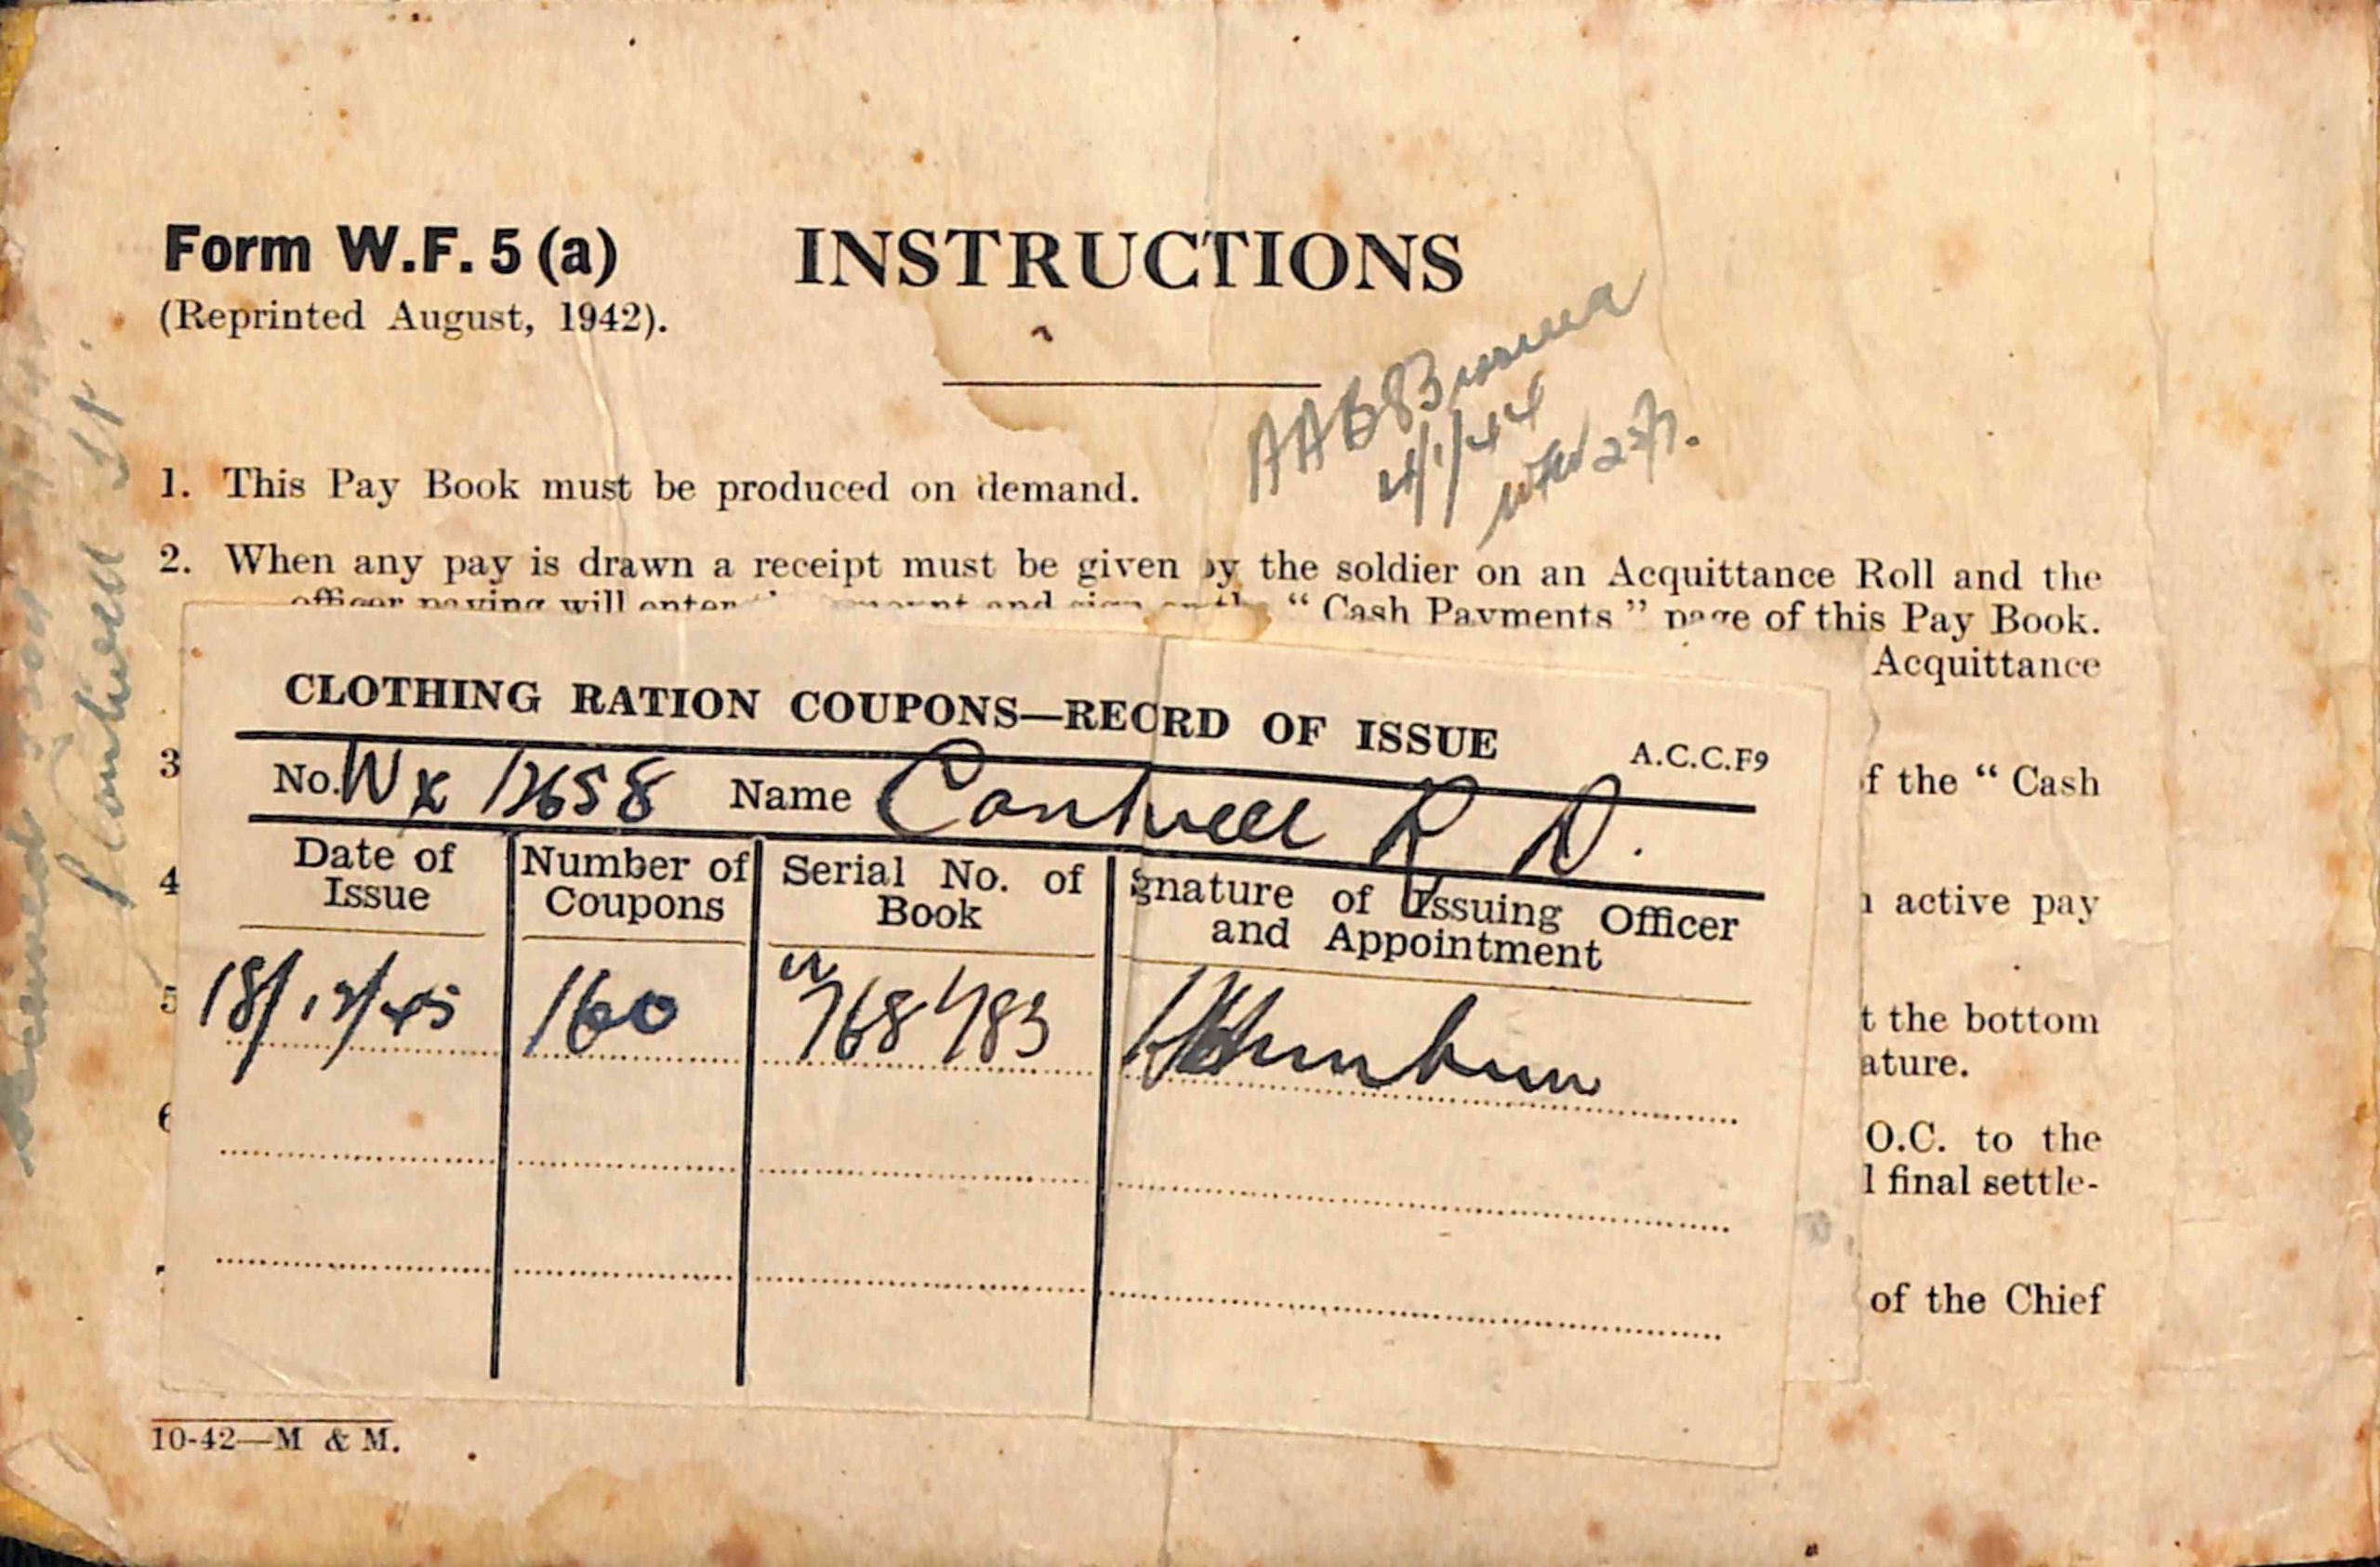 Form W.F. 5 (a)
INSTRUCTIONS
(Reprinted August, 1942).
1. This Pay Book must be produced on demand.
2. When any pay is drawn a receipt must be given by the soldier on an Acquittance Roll and the
officer paying will enter amount and sign on the “ Cash Payments ” page of this Pay Book.
Acquittance
3
f the “ Cash
4
active pay
5
t the bottom
ature.
6
O.C. to the
l final settle-
of the Chief
10-42—M & M.
CLOTHING RATION COUPONS—RECRD OF ISSUE
A.C.C.F9
No. Wx 12658 Name Cantwell R D.
Date of Issue
Number of Coupons
Serial No. of Book
gnature of Issuing Officer and Appointment
18/12/45 160 768783
4/1/44